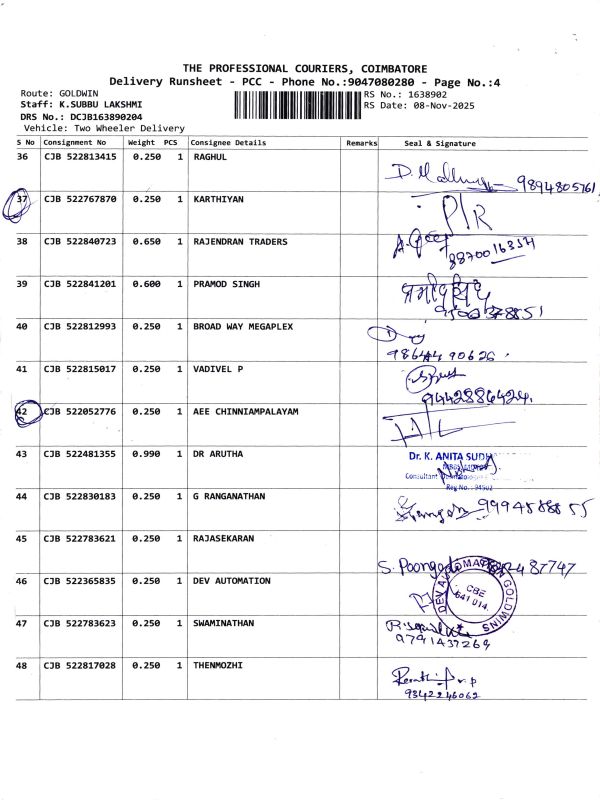 THE PROFESSIONAL COURIERS, COIMBATORE
Delivery Runsheet - PCC - Phone No.:9047080280 - Page No.:4
Route: GOLDWIN
Staff: K.SUBBU LAKSHMI
DRS No.: DCJB163890204
Vehicle: Two Wheeler Delivery
RS No.: 1638902
RS Date: 08-Nov-2025
S No Consignment No Weight PCS Consignee Details Remarks Seal & Signature
36 CJB 522813415 0.250 1 RAGHUL 9894805761
37 CJB 522767870 0.250 1 KARTHIYAN
38 CJB 522840723 0.650 1 RAJENDRAN TRADERS
39 CJB 522841201 0.600 1 PRAMOD SINGH
40 CJB 522812993 0.250 1 BROAD WAY MEGAPLEX
41 CJB 522815017 0.250 1 VADIVEL P
9442886424.
42 CJB 522052776 0.250 1 AEE CHINNIAMPALAYAM
43 CJB 522481355 0.990 1 DR ARUTHA
Dr. K. ANITA
Consultant
Reg No.: 94502
44 CJB 522830183 0.250 1 G RANGANATHAN 9994588855
45 CJB 522783621 0.250 1 RAJASEKARAN
S. Poongodi
46 CJB 522365835 0.250 1 DEV AUTOMATION
DEV AUTOMATION GOLDWINS
CBE
641 014.
47 CJB 522783623 0.250 1 SWAMINATHAN
9791437269
48 CJB 522817028 0.250 1 THENMOZHI
9342246062